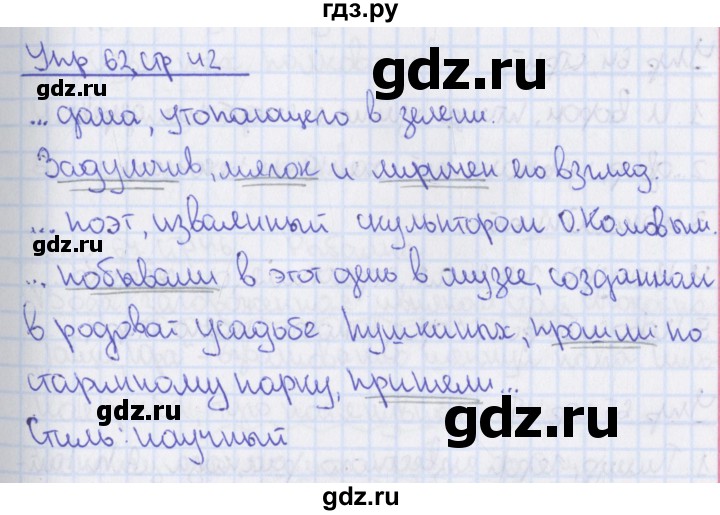 гдз.ру
Упр 62, стр 42
... дома, утопающего в зелени.
Задумчив, мягок и лиричен его взгляд.
... поэт, изваянный скульптором О.Комовым.
... побывали в этот день в музее, созданном
в родовой усадьбе Пушкиных, прошли по
старинному парку, приняли...
Стиль: научный
gdz.ru
gdz.ru
gdz.ru
gdz.ru
gdz.ru
gdz.ru
gdz.ru
gdz.ru